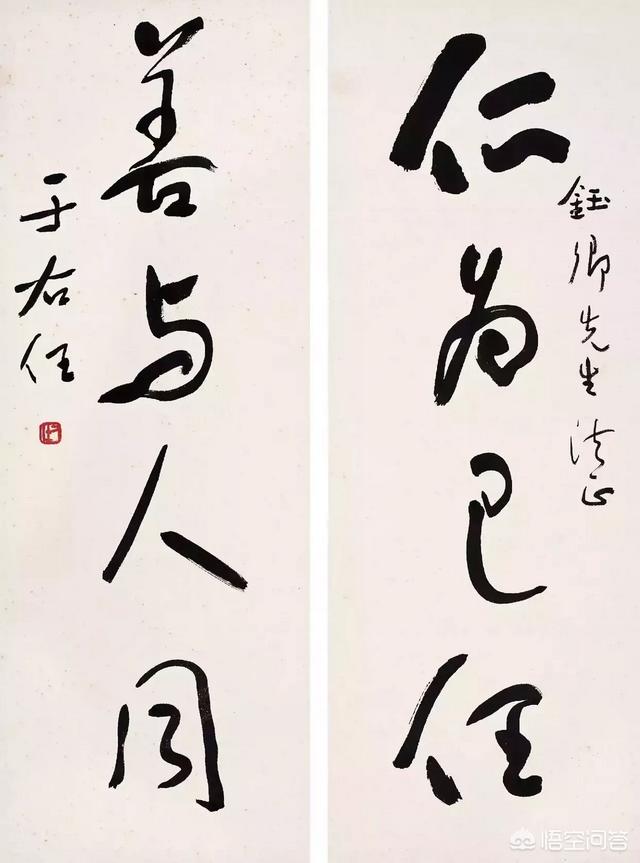 仁为己任
鈺卿先生法正
善与人同
于右任
悟空问答